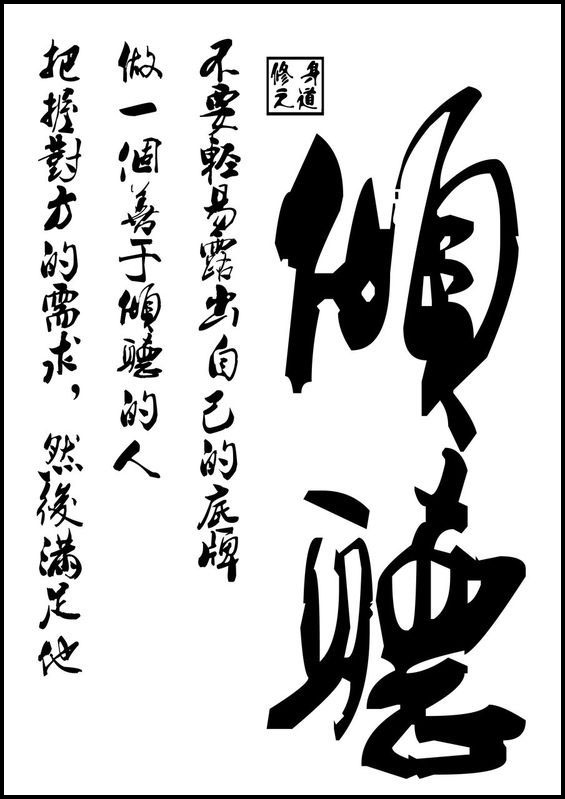 傾聽
身道
修元
不要輕易露出自己的底牌
做一個善于傾聽的人
把握對方的需求，然後滿足他